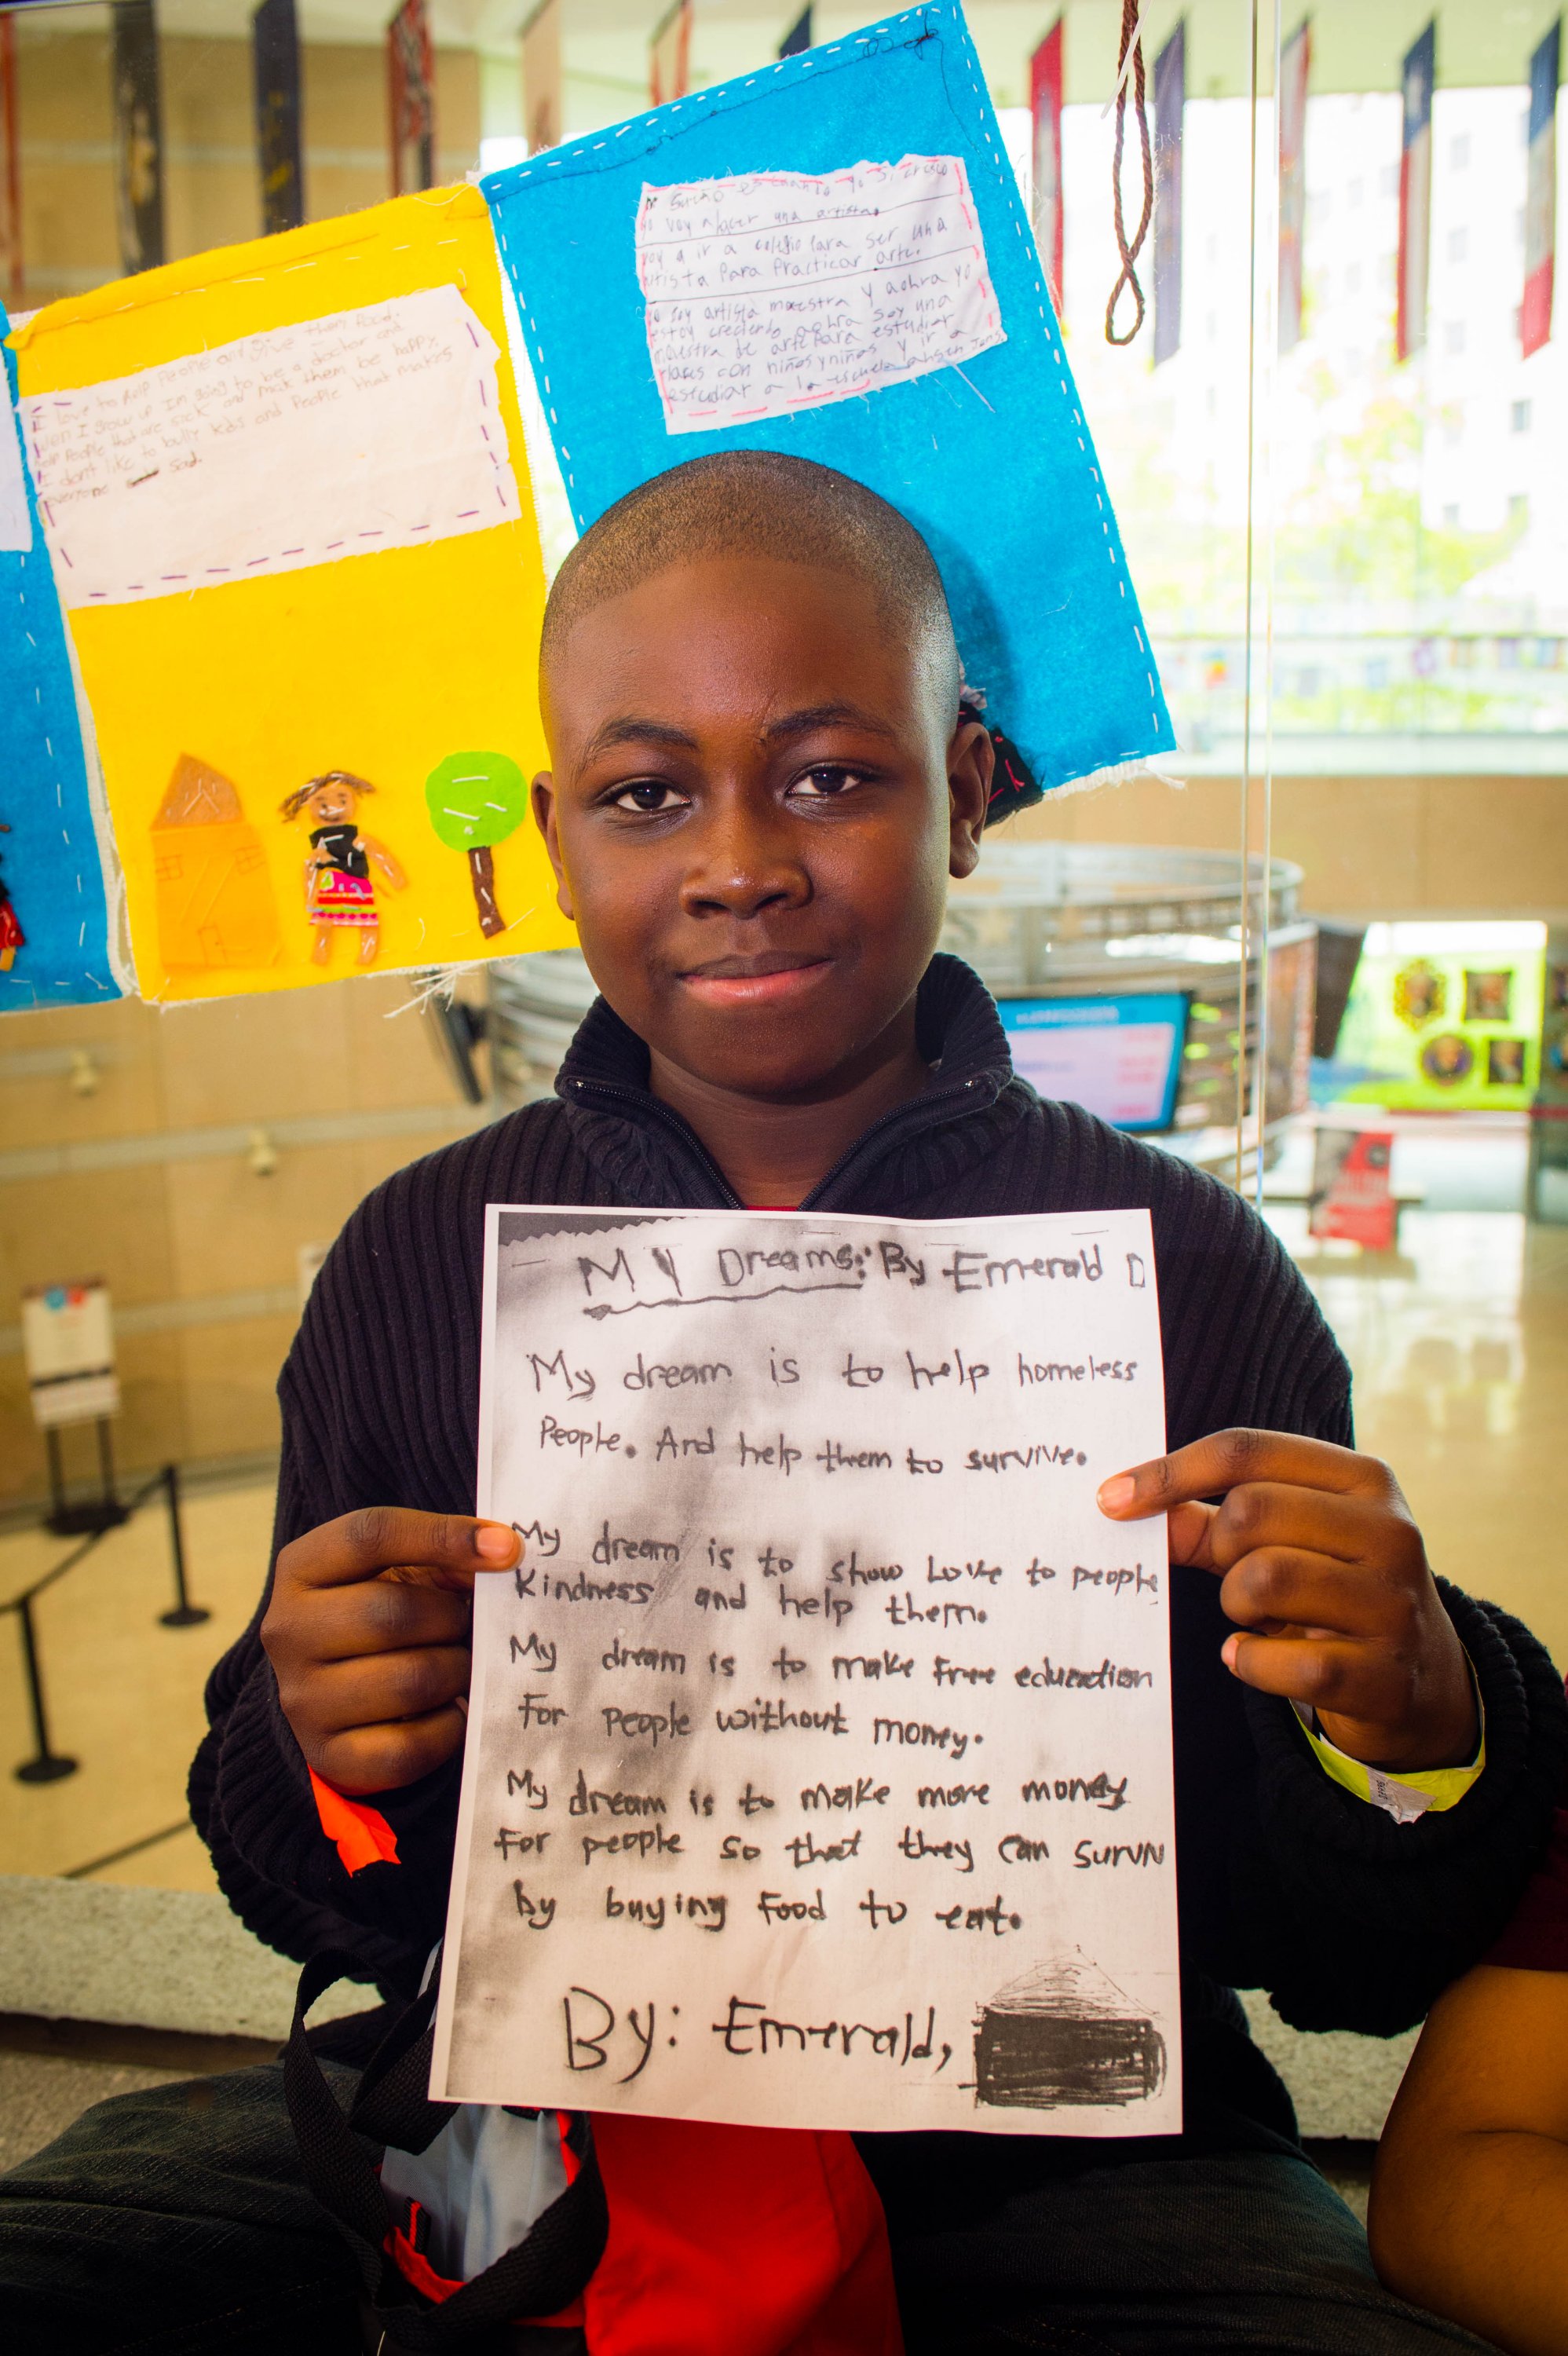 Sueño es cuando yo si cresco
yo voy a hacer una artista.
voy a ir a colegio para ser una
artista para practicar arte.
yo soy artista maestra y aohra yo
estoy creciendo aohra soy una
maestra de arte para estudiar
clases con niños y niñas y ir a
estudiar a la escuela
I love to help people and give them food.
when I grow up I'm going to be a doctor and
help people that are sick and mak them be happy.
I don't like to bully kids and people that makes
everyone sad.
MY Dreams: By Emerald D
My dream is to help homeless
People. And help them to survive.
My dream is to show Love to people
Kindness and help them.
My dream is to make Free education
For people without money.
My dream is to make more money
For people so that they can surviv
by buying Food to eat.
By: Emerald,